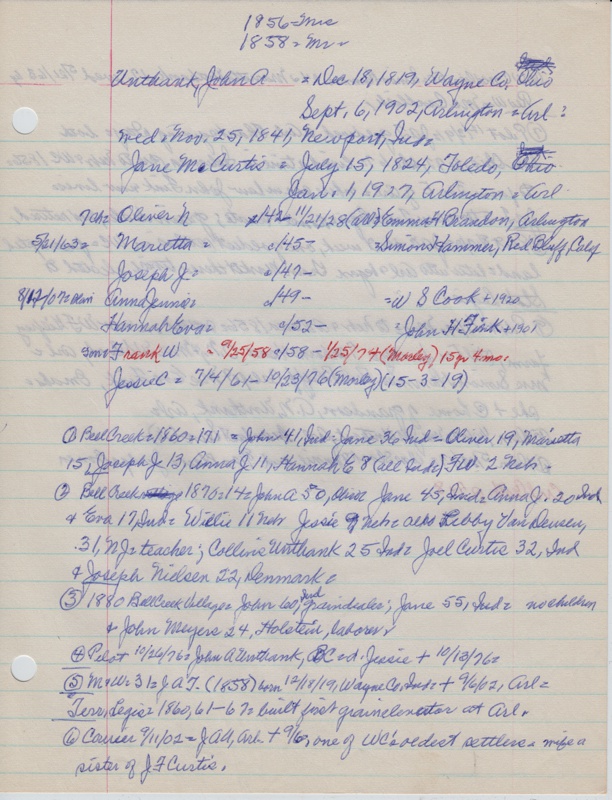 1856 = Mrc
1858 = Mr =
Unthank, John A = Dec 18, 1819, Wayne Co, Ohio
Sept. 6, 1902, Arlington = Arl =
wed = Nov. 25, 1841, Newport, Ind =
Jane McCurtis = July 15, 1824, Toledo, Ohio
Jan. 1, 1927, Arlington = Arl
7ch = Oliver N c/42 - 11/21/28 Emma H Brandon, Arlington
5/21/63 = Marietta = c/45 - = Simon Hammer, Red Bluff Calif
Joseph J = c/47 -
8/12/07 = Anna Jenna = c/49 - = W S Cook + 1920
Hannah Eva = c/52 - = John H. Fink + 1901
Frank W = 9/25/58 = 158 - 1/25/74 (Morley) 15 yr 4 mo.
Jessie C = 7/4/61 - 10/23/76 (Morley) (15-3-19)
① Bell Creek = 1860 = 171 = John 41, Ind = Jane 36 Ind = Oliver 19, Marietta
15, Joseph J 13, Anna J 11, Hannah E 8 (all Ind.) FW 2 Nebr.
② Bell Creek 1870 = 14 = John A 50, Ohio Jane 45, Ind = Anna J = 20 Ind
& Eva 17, Ind = Willie 11 Nebr Jessie 9 Neb = also Libby Van Deusen,
31, NJ = teacher; Collins Unthank 25 Ind = Joel Curtis 32, Ind
& Joseph Nielsen 22, Denmark =
③ 1880 Bell Creek Village = John 60, Ind graindealer; Jane 55, Ind = no children
& John Meyers 24, Holstein, laborer.
④ Pilot 10/26/76 = John A Unthank, BC = d. Jessie + 10/13/76 =
⑤ M & W = 31 = J A T. (1858) born 12/18/19, Wayne Co, Ind = + 9/6/02, Arl =
Terr. Legis = 1860, 61-67 = built first grain elevator at Arl.
⑥ Courier 9/11/02 = J A U, Arl. + 9/6, one of WC's oldest settlers = wife a
sister of J F Curtis.